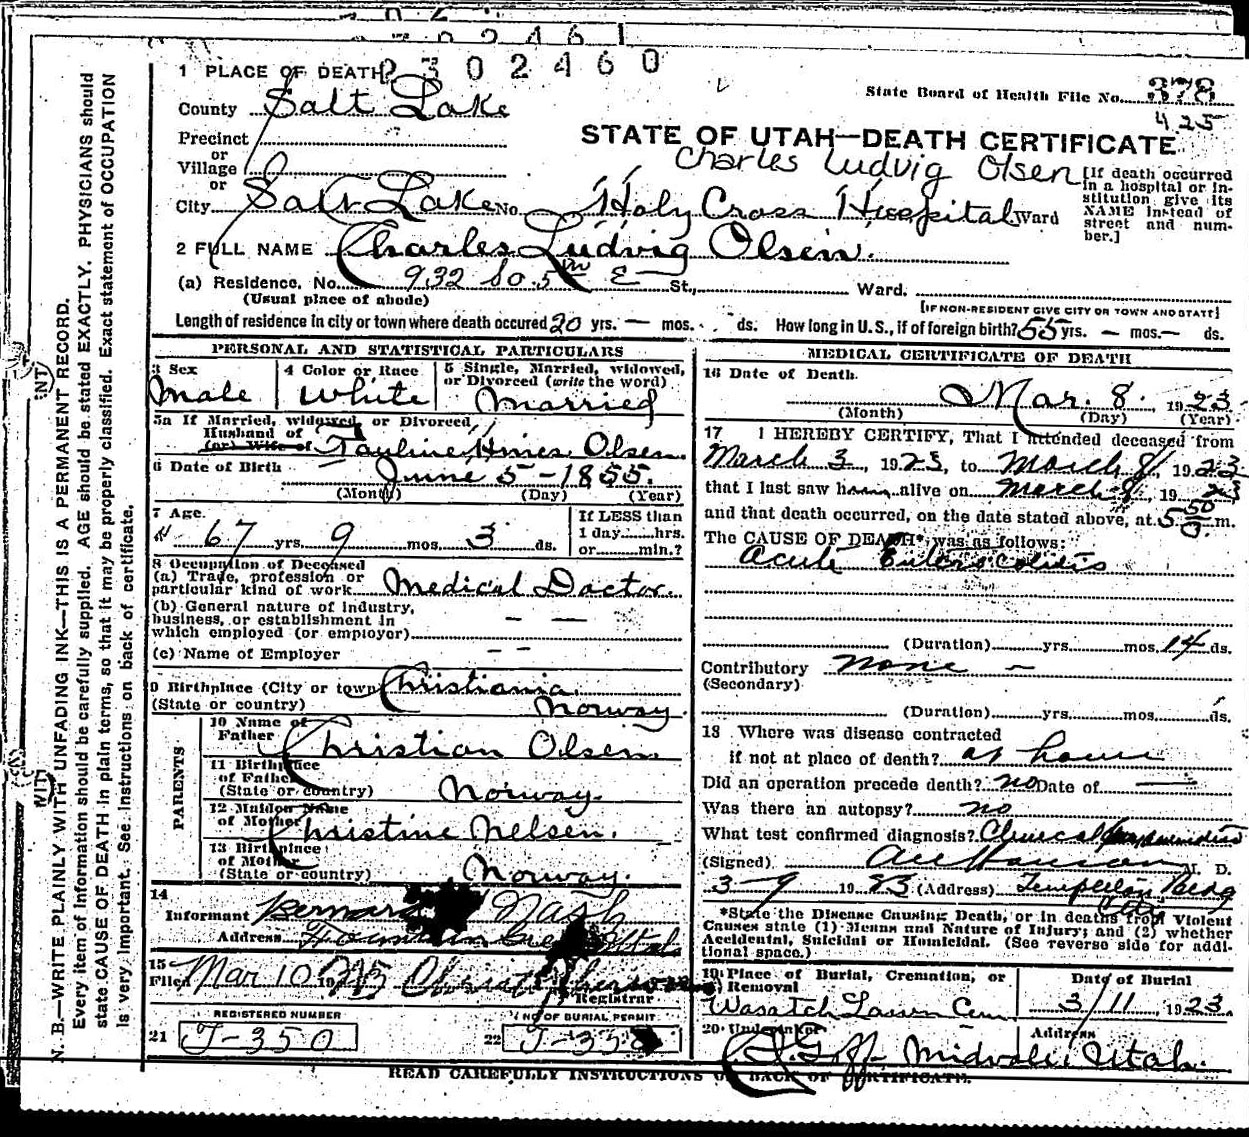 302461
2302460
1 PLACE OF DEATH
County Salt Lake
State Board of Health File No. 378
425
Precinct
or
Village
or
STATE OF UTAH—DEATH CERTIFICATE
Charles Ludvig Olsen
City Salt Lake No. Holy Cross Hospital Ward
[If death occurred in a hospital or institution give its NAME instead of street and number.]
2 FULL NAME Charles Ludvig Olsen.
(a) Residence. No. 932 So. 5th E St., Ward.
(Usual place of abode)
[IF NON-RESIDENT GIVE CITY OR TOWN AND STATE]
Length of residence in city or town where death occured 20 yrs. — mos. ds. How long in U.S., if of foreign birth? 55 yrs. — mos. — ds.
PERSONAL AND STATISTICAL PARTICULARS
3 Sex
Male
4 Color or Race
White
5 Single, Married, widowed,
or Divorced (write the word)
Married
5a If Married, widowed, or Divorced
Husband of
(or) Wife of Pauline Olsen.
6 Date of Birth June 5-1855.
(Month) (Day) (Year)
7 Age.
67 yrs. 9 mos. 3 ds.
If LESS than
1 day......hrs.
or......min.?
8 Occupation of Deceased
(a) Trade, profession or
particular kind of work Medical Doctor.
(b) General nature of industry,
business, or establishment in
which employed (or employer) — —
(c) Name of Employer — —
9 Birthplace (City or town) Christiania.
(State or country) Norway.
PARENTS
10 Name of
Father Christian Olsen.
11 Birthplace
of Father
(State or country) Norway.
12 Maiden Name
of Mother Christine Nelsen.
13 Birthplace
of Mother
(State or country) Norway.
14
Informant Bernard Nash
Address Fountain Green Utah
15
Filed Mar 10 1923
Registrar
REGISTERED NUMBER
21 J-350
NO OF BURIAL PERMIT
22 J-350
MEDICAL CERTIFICATE OF DEATH
16 Date of Death.
Mar. 8. 1923.
(Month) (Day) (Year)
17 I HEREBY CERTIFY, That I attended deceased from
March 3, 1923, to March 8, 1923
that I last saw him alive on March 8, 1923
and that death occurred, on the date stated above, at 5 50 a.m.
The CAUSE OF DEATH* was as follows:
Acute Enterocolitis
(Duration)......yrs......mos. 14 ds.
Contributory None —
(Secondary)
(Duration)......yrs......mos......ds.
18 Where was disease contracted
if not at place of death? at home
Did an operation precede death? no Date of —
Was there an autopsy? no
What test confirmed diagnosis? Clinical
(Signed) M. D.
3-9 1923 (Address) Templeton Bldg
*State the Disease Causing Death, or in deaths from Violent
Causes state (1) Means and Nature of Injury; and (2) whether
Accidental, Suicidal or Homicidal. (See reverse side for additional space.)
19 Place of Burial, Cremation, or
Removal
Wasatch Lawn Cem
Date of Burial
3/11, 1923.
20 Undertaker Address
Goff Midvale, Utah.
READ CAREFULLY INSTRUCTIONS ON BACK OF CERTIFICATE.
N. B.—WRITE PLAINLY WITH UNFADING INK—THIS IS A PERMANENT RECORD.
Every item of information should be carefully supplied. AGE should be stated EXACTLY. PHYSICIANS should
state CAUSE OF DEATH in plain terms, so that it may be properly classified. Exact statement of OCCUPATION
is very important. See instructions on back of certificate.